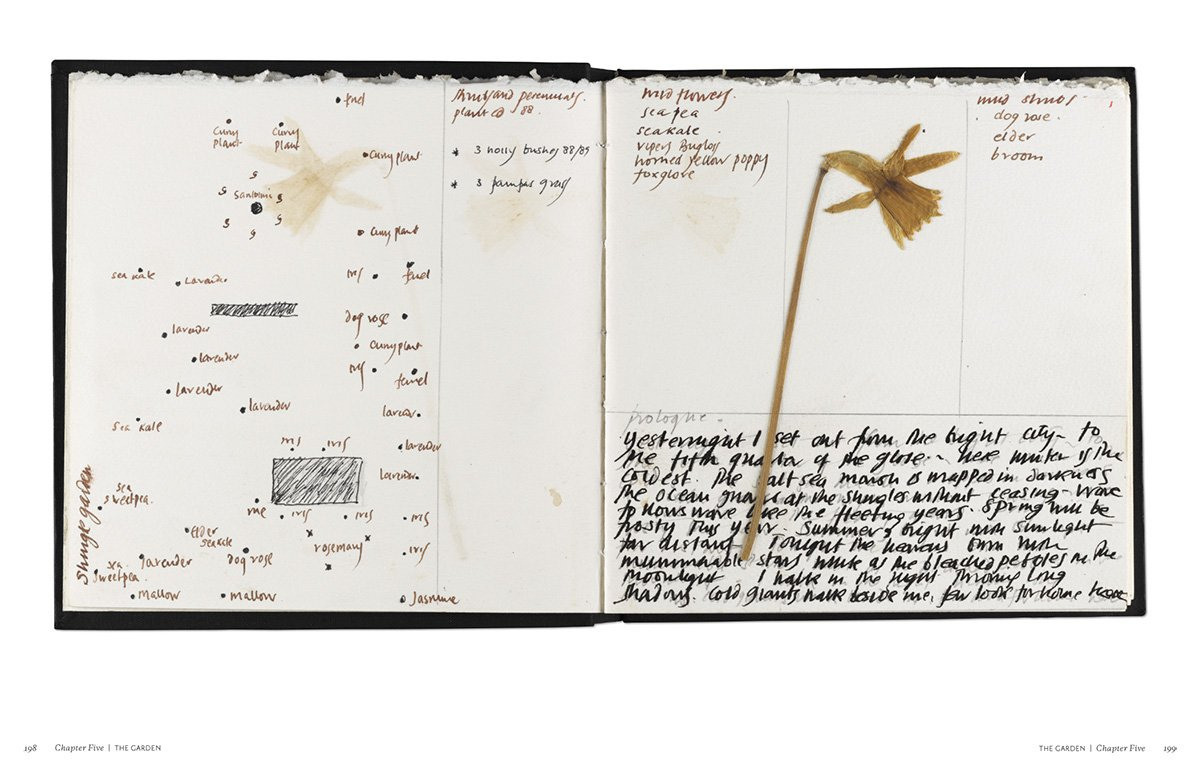 fenel
Curry
plant
Curry
plant
Curry plant
Santolini
Curry plant
sea kale
Lavender
iris
fenel
dog rose
lavender
Curry plant
lavender
iris
fennel
lavender
lavender
lavender
sea kale
iris
iris
lavender
lavender
Shingle garden
sea
sweetpea.
iris
iris
iris
elder
seakale
rosemary
iris
lavender
dog rose
sea
sweetpea.
mallow
mallow
Jasmine
Shrubs and perennials.
planted 88.
* 3 holly bushes 88/89
* 3 pampas grass
wild flowers.
sea pea
seakale.
vipers Bugloss
horned yellow poppy
foxglove
wild shrubs.
dog rose.
elder
broom
prologue.
Yesternight I set out from the bright city - to
the fifth quarter of the globe - here winter is the
coldest. The salt sea marsh is mapped in darkness
the ocean gnaws at the shingles without ceasing - wave
follows wave the fleeting years. Spring will be
frosty this year. Summers bright with sunlight
far distant. Tonight the heavens burn with
stars white as the bleached pebbles in the
moonlight I walk in the night throwing long
shadows. Cold giants walk beside me, few look for home
198 Chapter Five | THE GARDEN
THE GARDEN | Chapter Five 199